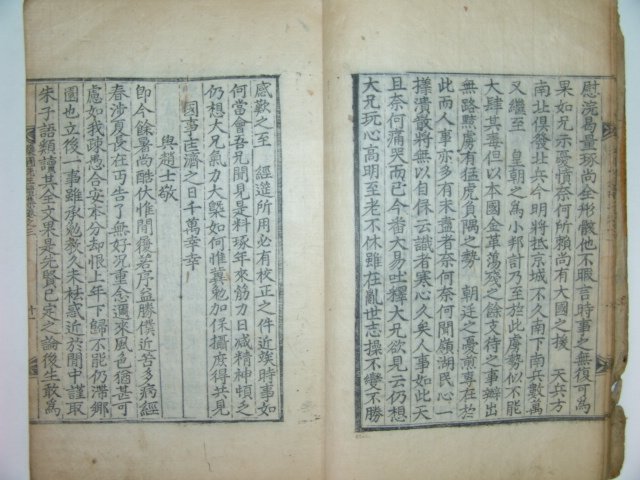 慰浣曷量琢尚全彤骸他不暇言時事之無復可爲
果如兄示憂憤奈何所賴尚有大國之援　天兵方
南北俱發北兵今明將抵京城不久南下南兵數萬
又繼至　皇朝之爲小邦計乃至於此虜勢似不能
大肆其毒但以本國金革蕩殘之餘支待之事辦出
無路黠虜有猛虎負隅之勢　朝廷之憂煎專在於
此而人事亦多未盡者奈何奈何間嶺湖民心一
㨾潰散將無以自保云識者寒心久矣人事如此天
且奈何痛哭而已今番大易吐釋大兄欲見云仍想
大兄玩心高明至老不休雖在亂世志操不變不勝
感歎之至　經筵所用必有校正之件近埃時事如
何當會吾兄聞見是料琢年來筋力日減精神頓乏
仍想大兄氣力大槩如何惟冀勉加保攝庶得共見
國事吉濟之日千萬幸幸
與趙士敬
卽今餘暑尚酷伏惟閒復若序益勝僕近苦多病經
春涉夏長在丏告了無好況重念邇來風色猶甚可
慮如我疎愚合安本分却恨上年下歸不能仍滯鄕
園也立後一事雖承勉敎久未祛惑近於閒中謹取
朱子語類讀其全文果是先賢已定之論後生敢爲